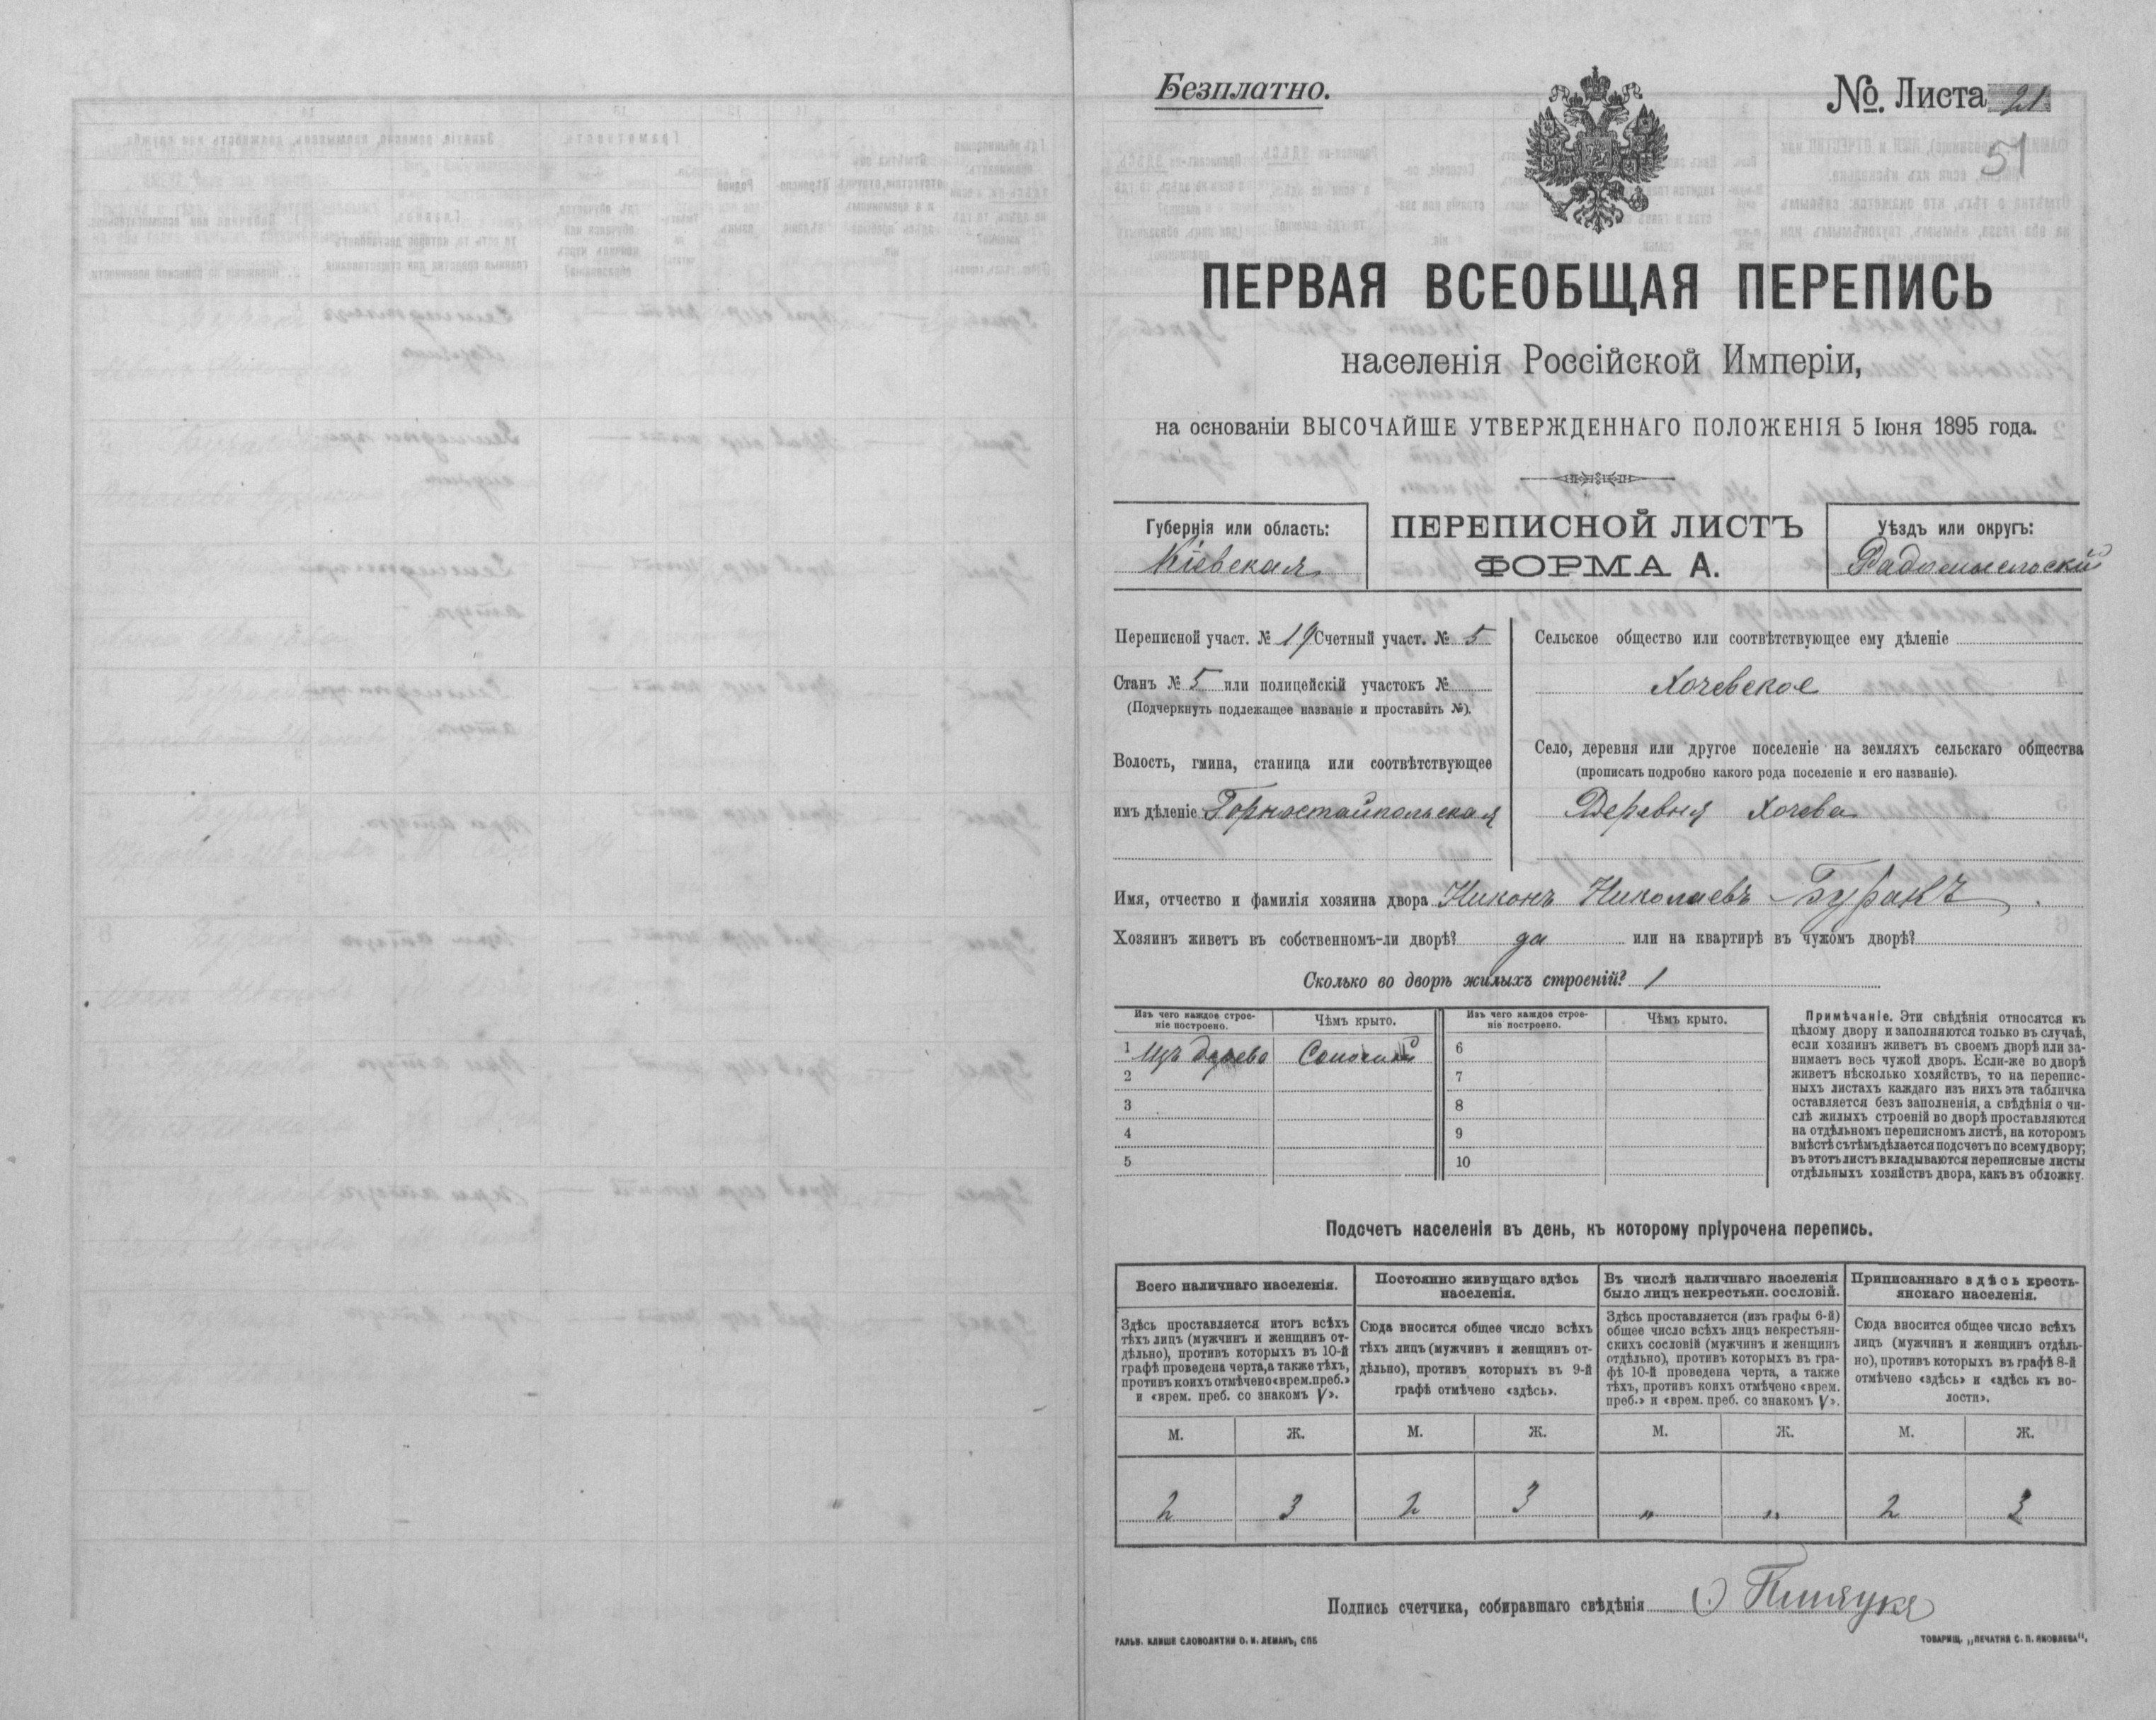 Безплатно.
№ Листа 21
51
ПЕРВАЯ ВСЕОБЩАЯ ПЕРЕПИСЬ
населенія Россійской Имперіи,
на основаніи ВЫСОЧАЙШЕ УТВЕРЖДЕННАГО ПОЛОЖЕНІЯ 5 Іюня 1895 года.
Губернія или область:
Кіевская
ПЕРЕПИСНОЙ ЛИСТЪ
ФОРМА А.
Уѣздъ или округъ:
Радомысльскій
Переписной участ. № 19 Счетный участ. № 5
Станъ № 5 или полицейскій участокъ №
(Подчеркнуть подлежащее названіе и проставить №).
Волость, гмина, станица или соотвѣтствующее
имъ дѣленіе Горностайпольская
Сельское общество или соотвѣтствующее ему дѣленіе
Хочевское
Село, деревня или другое поселеніе на земляхъ сельскаго общества
(прописать подробно какого рода поселеніе и его названіе).
Деревня Хочева
Имя, отчество и фамилія хозяина двора Никонъ Николаевъ Буракъ
Хозяинъ живетъ въ собственномъ-ли дворѣ? да или на квартирѣ въ чужомъ дворѣ?
Сколько во дворѣ жилыхъ строеній? 1
Изъ чего каждое строе-
ніе построено.
Чѣмъ крыто.
Изъ чего каждое строе-
ніе построено.
Чѣмъ крыто.
1 Изъ дерева 6
2 7
3 8
4 9
5 10
Примѣчаніе. Эти свѣдѣнія относятся къ
цѣлому двору и заполняются только въ случаѣ,
если хозяинъ живетъ въ своемъ дворѣ или за-
нимаетъ весь чужой дворъ. Если-же во дворѣ
живетъ нѣсколько хозяйствъ, то на перепис-
ныхъ листахъ каждаго изъ нихъ эта табличка
оставляется безъ заполненія, а свѣдѣнія о чи-
слѣ жилыхъ строеній во дворѣ проставляются
на отдѣльномъ переписномъ листѣ, на которомъ
вмѣстѣ съ тѣмъ дѣлается подсчетъ по всему двору;
въ этотъ листъ вкладываются переписные листы
отдѣльныхъ хозяйствъ двора, какъ въ обложку.
Подсчетъ населенія въ день, къ которому пріурочена перепись.
Всего наличнаго населенія.
Здѣсь проставляется итогъ всѣхъ
тѣхъ лицъ (мужчинъ и женщинъ от-
дѣльно), противъ которыхъ въ 10-й
графѣ проведена черта, а также тѣхъ,
противъ коихъ отмѣчено «врем. преб.»
и «врем. преб. со знакомъ V».
Постоянно живущаго здѣсь
населенія.
Сюда вносится общее число всѣхъ
тѣхъ лицъ (мужчинъ и женщинъ от-
дѣльно), противъ которыхъ въ 9-й
графѣ отмѣчено «здѣсь».
Въ числѣ наличнаго населенія
было лицъ некрестьян. сословій.
Здѣсь проставляется (изъ графы 6-й)
общее число всѣхъ лицъ некрестьян-
скихъ сословій (мужчинъ и женщинъ
отдѣльно), противъ которыхъ въ гра-
фѣ 10-й проведена черта, а также
тѣхъ, противъ коихъ отмѣчено «врем.
преб.» и «врем. преб. со знакомъ V».
Приписаннаго здѣсь кресть-
янскаго населенія.
Сюда вносится общее число всѣхъ
лицъ (мужчинъ и женщинъ отдѣль-
но), противъ которыхъ въ графѣ 8-й
отмѣчено «здѣсь» и «здѣсь къ во-
лости».
М. Ж. М. Ж. М. Ж. М. Ж.
2 3 2 3 „ „ 2 3
Подпись счетчика, собиравшаго свѣдѣнія
ГАЛЬВ. КЛИШЕ СЛОВОЛИТНИ О. И. ЛЕМАНЪ, СПБ
ТОВАРИЩ. „ПЕЧАТНЯ С. П. ЯКОВЛЕВА“.